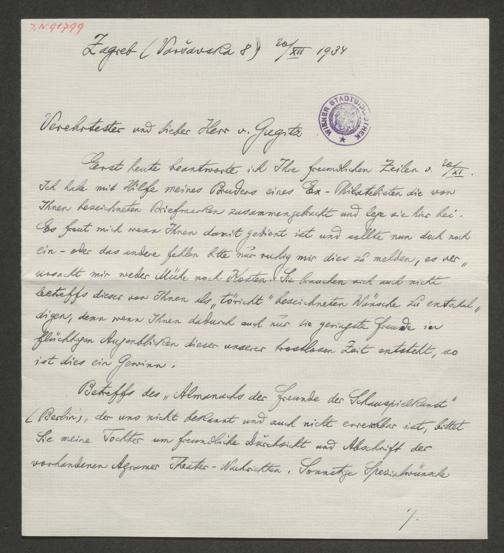 I.N. 91799
Zagreb (Varšavska 8) 20/XII 1934
WIENER STADTBIBLIOTHEK
Verehrtester und lieber Herr v. Gugitz
Erst heute beantworte ich Ihre freundlichen Zeilen v. 20/XI.
Ich habe mit Hilfe meines Bruders eines Ex-Philatelisten die von
Ihnen bezeichneten Briefmarken zusammengebracht und lege sie hier bei.
Es freut mich wenn Ihnen damit gedient ist und sollte nun doch noch
ein- oder das andere fehlen bitte nur ruhig mir dies zu melden, es ver„
ursacht mir weder Mühe noch Kosten. Sie brauchen sich auch nicht
betreffs dieser von Ihnen als „töricht" bezeichneten Wünsche zu entschul„
digen, denn wenn Ihnen dadurch auch nur die geringste Freude in
flüchtigen Augenblicken dieser unserer trostlosen Zeit entsteht, so
ist dies ein Gewinn.
Betreffs des „Almanachs der Freunde der Schauspielkunst"
(Berlin), der uns nicht bekannt und auch nicht erreichbar ist, bittet
Sie meine Tochter um freundliche Durchsicht und Abschrift der
vorhandenen Agramer Theater-Nachrichten. Sonnstige Spezialwünsche
./.